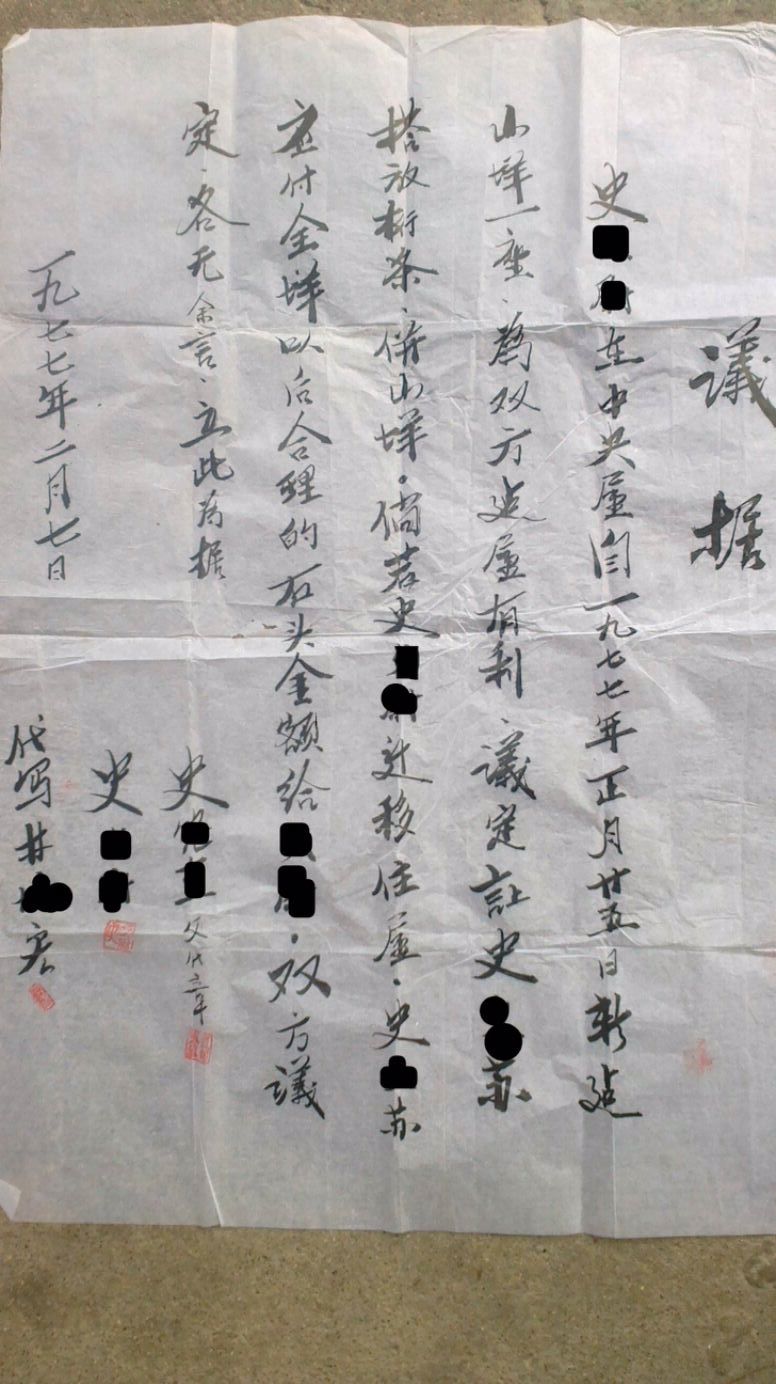 議據
史在中央屋间一九七七年正月廿五日新造
山垟一座、為双方造屋有利、議定讓史苏
搭放桁条、併山垟。倘若史迁移住屋、史苏
应付全垟以后合理的石头金额给。双方議
定、各无余言、立此為据
一九七七年二月七日
史父代章
史
代写林宏